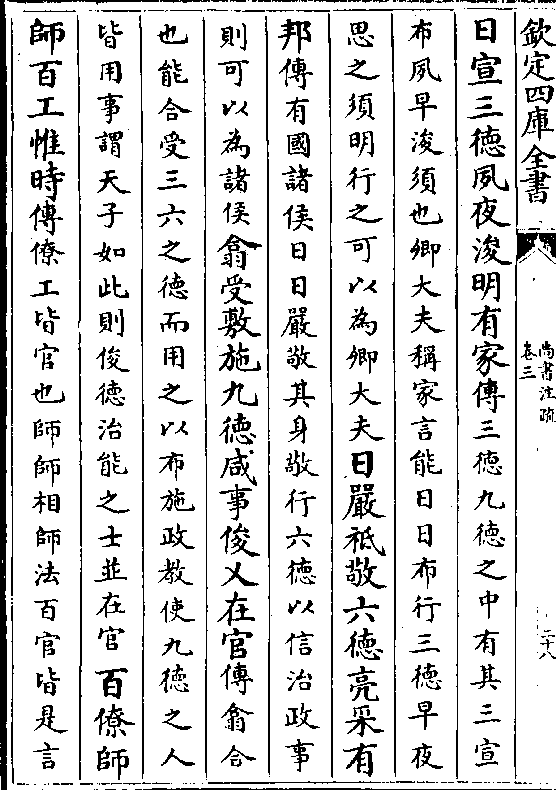 欽定四庫全書
尚書注疏
卷三
二十八
日宣三德夙夜浚明有家傳三德九德之中有其三宣
布夙早浚須也卿大夫稱家言能日日布行三德早夜
思之須明行之可以為卿大夫日嚴祗敬六德亮采有
邦傳有國諸侯日日嚴敬其身敬行六德以信治政事
則可以為諸侯翕受敷施九德咸事俊乂在官傳翕合
也能合受三六之德而用之以布施政教使九德之人
皆用事謂天子如此則俊德治能之士並在官百僚師
師百工惟時傳僚工皆官也師師相師法百官皆是言